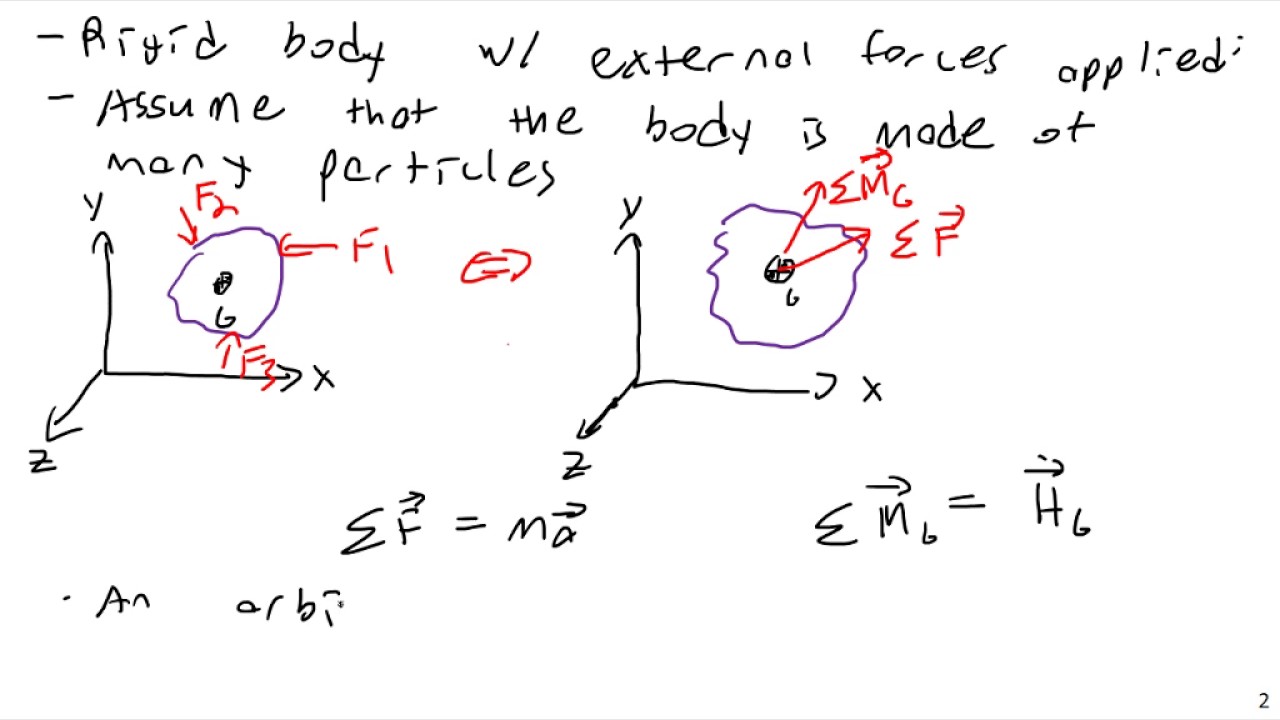 - Rigid body w/ external forces applied:
- Assume that the body is made of
many particles
Y
F2
F1
G
F3
X
Z
⇔
Y
ΣM⃗G
ΣF⃗
G
X
Z
ΣF⃗ = ma⃗
ΣM⃗G = Ḣ⃗G
· An arbi
2